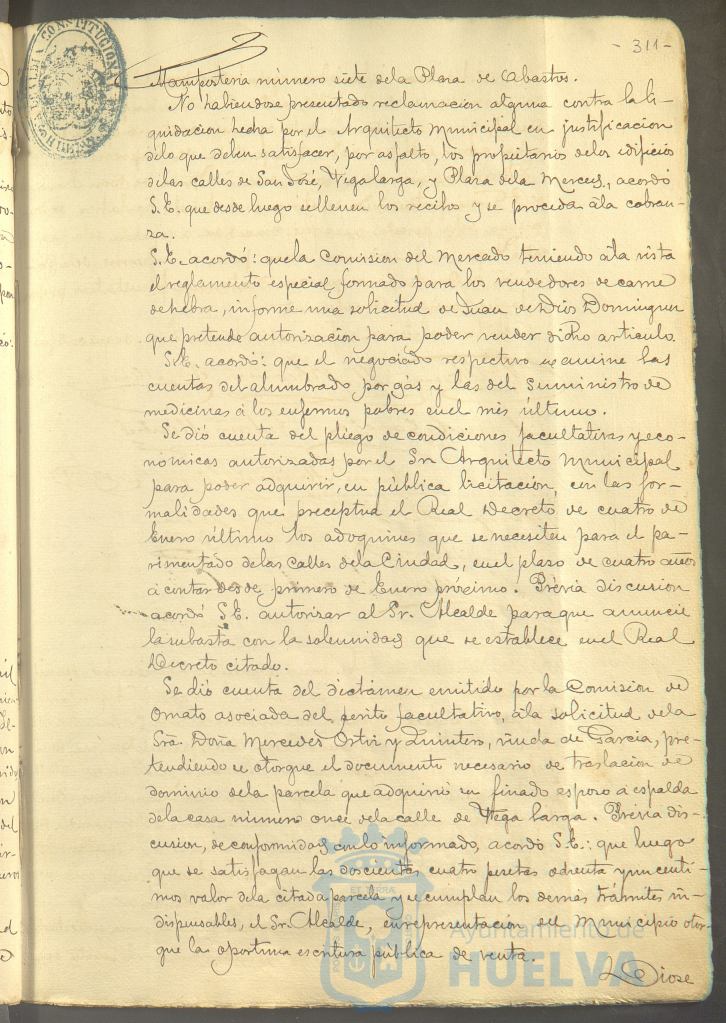 - 311 -
Mamposteria número siete de la Plaza de Abastos.
No habiendose presentado reclamacion alguna contra la li-
quidacion hecha por el Arquitecto Municipal en justificacion
de lo que deben satisfacer, por asfalto, los propietarios de los edificios
de las calles de San José, Vega larga, y Plaza de la Merced, acordó
S.E. que desde luego se llenen los recibos y se proceda á la cobran-
za.
S.E. acordó: que la Comision del Mercado teniendo á la vista
el reglamento especial formado para los vendedores de carne
de hebra, informe una solicitud de Juan de Dios Dominguez
que pretende autorizacion para poder vender dicho articulo.
S.E. acordó: que el negociado respectivo examine las
cuentas del alumbrado por gás y las del suministro de
medicinas á los enfermos pobres en el mes último.
Se dió cuenta del pliego de condiciones facultativas y eco-
nómicas autorizadas por el Sr. Arquitecto Municipal
para poder adquirir, en pública licitacion, con las for-
malidades que preceptua el Real Decreto de cuatro de
Enero último los adoquines que se necesiten para el pa-
vimentado de las calles de la Ciudad, en el plazo de cuatro años
á contar desde primero de Enero próximo. Prévia discusion
acordó S.E. autorizar al Sr. Alcalde para que anuncie
la subasta con la solemnidad que se establece en el Real
Decreto citado.
Se dió cuenta del dictámen emitido por la Comision de
Ornato asociada del perito facultativo, á la solicitud de la
Sra. Doña Mercedes Ortiz y Quintero, viuda de Garcia, pre-
tendiendo se otorgue el documento necesario de traslacion de
dominio de la parcela que adquirió su finado esposo á espalda
de la casa número once de la calle de Vega larga. Prévia dis-
cusion, de conformidad con lo informado, acordó S.E.: que luego
que se satisfagan las doscientas cuatro pesetas ochenta y un centi-
mos valor de la citada parcela y se cumplan los demás trámites in-
dispensables, el Sr. Alcalde, en representacion del Municipio otor-
gue la oportuna escritura pública de venta.
Diose
Ayuntamiento de
HUELVA